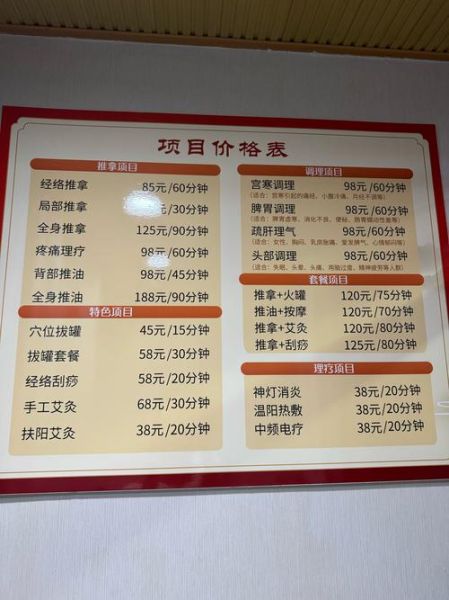 项目价格表
推拿项目
经络推拿 85元/60分钟
局部推拿 元/30分钟
全身推拿 125元/90分钟
疼痛理疗 98元/60分钟
背部推油 98元/45分钟
全身推油 188元/90分钟
特色项目
穴位拔罐 45元/15分钟
拔罐套餐 58元/30分钟
经络刮痧 58元/20分钟
手工艾灸 68元/30分钟
扶阳艾灸 38元/20分钟
调理项目
宫寒调理 98元/60分钟
(适合：宫寒引起的痛经、小腹冷痛、月经不调等)
脾胃调理 98元/60分钟
(适合：脾胃虚寒、消化不良、便秘、肠胃蠕动性差等)
疏肝理气 98元/60分钟
(适合：女性、胸闷、乳房胀痛、爱发脾气、心情郁闷等)
头部调理 98元/60分钟
(适合：失眠、头晕、头痛、用脑过度、精神疲劳等人群)
套餐项目
推拿+火罐 120元/75分钟
推油+按摩 120元/70分钟
推拿+艾灸 120元/80分钟
推拿+刮痧 125元/80分钟
理疗项目
神灯消炎 38元/20分钟
温阳热敷 38元/20分钟
中频电疗 38元/20分钟